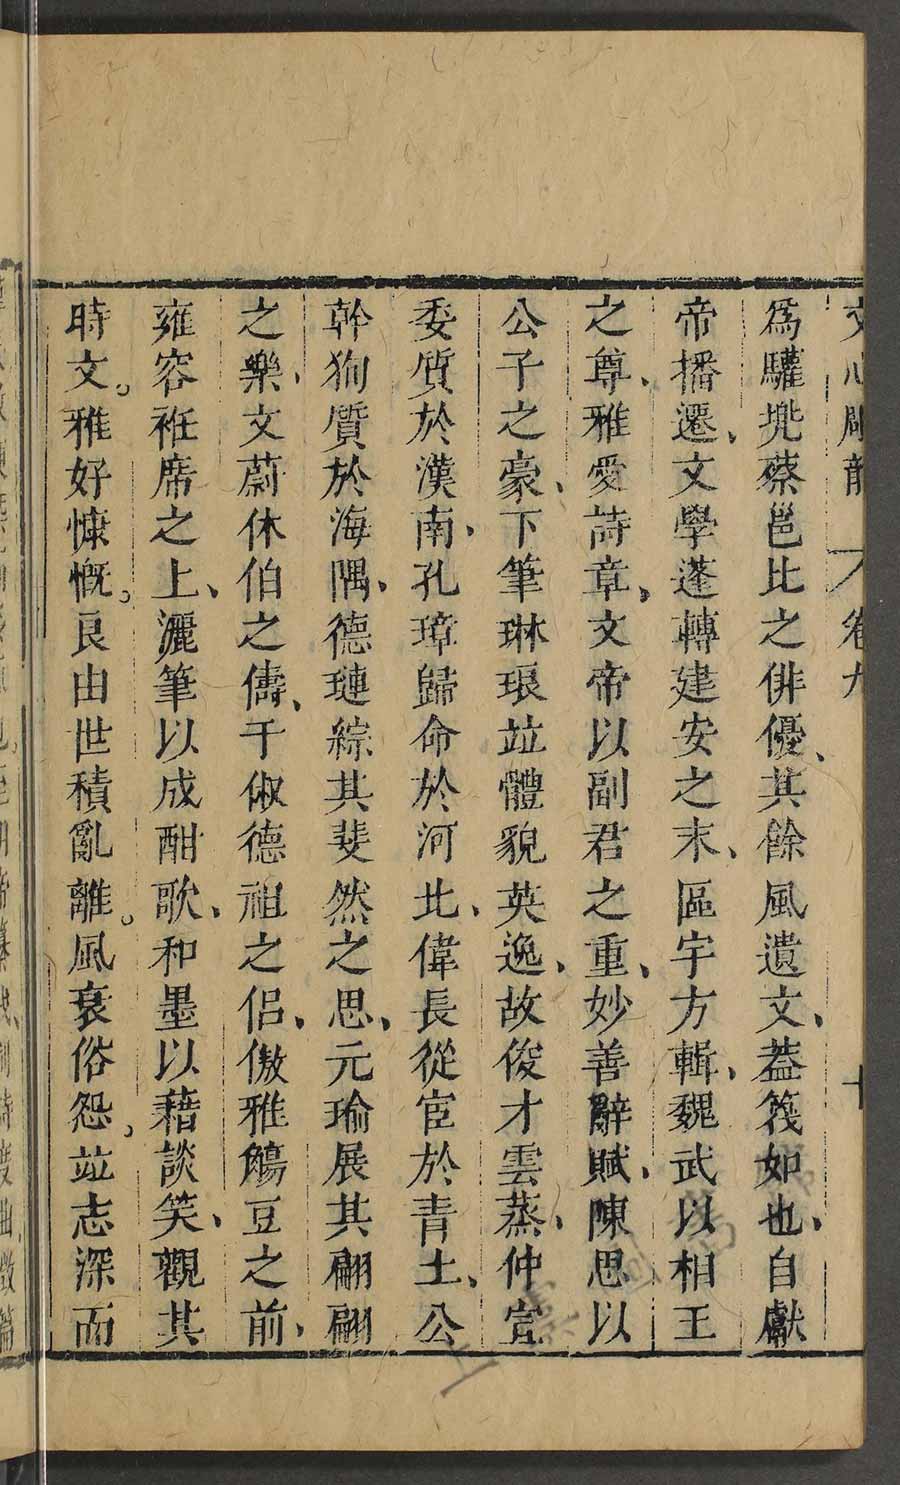 文心雕龍 卷九 十
爲驩兠蔡邕比之俳優、其餘風遺文、蓋篾如也、自獻
帝播遷、文學蓬轉建安之末、區宇方輯、魏武以相王
之尊、雅愛詩章、文帝以副君之重、妙善辭賦、陳思以
公子之豪、下筆琳琅竝體貌英逸、故俊才雲蒸、仲宣
委質於漢南、孔璋歸命於河北、偉長從宦於青土、公
幹狥質於海隅、德璉綜其斐然之思、元瑜展其翩翩
之樂、文蔚休伯之儔、于俶德祖之侣、傲雅觴豆之前、
雍容袵席之上、灑筆以成酣歌、和墨以藉談笑、觀其
時文。雅好慷慨。良由世積亂離。風衰俗怨。竝志深而